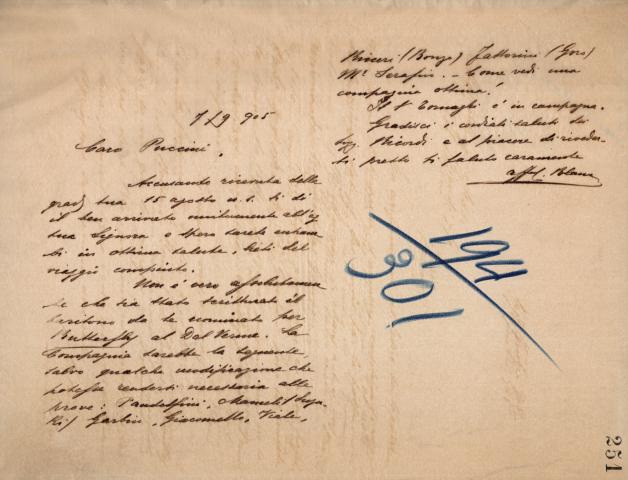 7 S 9 905
Caro Puccini,
Accusando ricevuta della
grad. tua 15 agosto u.s. ti dò
il ben arrivato unitamente all'eg
tua Signora e spero sarete entram
bi in ottima salute, lieti del
viaggio compiuto.
Non è vero assolutamen
te che sia stato scritturato il
baritono da te nominato per
Butterfly al Dal Verme. La
Compagnia sarebbe la seguente,
salvo qualche modificazione che
potesse rendersi necessaria alle
prove: Pandolfini, Mameli (Suzu
Ki) Garbin, Giacomello, Viale,
(Bonzo) Fattorini (Goro)
Mº Serafin. - Come vedi una
compagnia ottima!
Il Sr Tornaghi è in campagna.
Gradisci i cordiali saluti del
Sig. Ricordi e al piacere di riveder-
ti presto ti saluto caramente
aff. Blanc
194
301
251